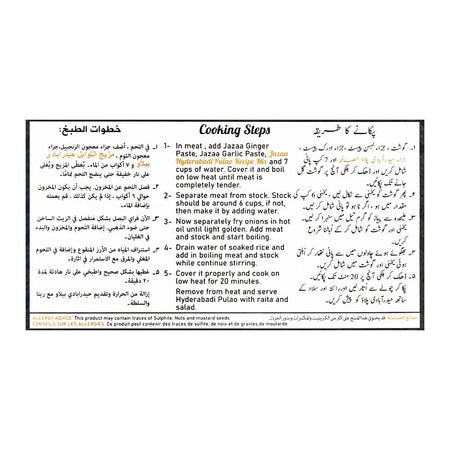 خطوات الطبخ:
١. في اللحم ، أضف جزاء معجون الزنجبيل،جزاء
معجون الثوم ، مزيج التوابل حيدرآبادي
بيلاو و ٧ أكواب من الماء. يُغطى المزيج ويُغلى
على نار خفيفة حتى ينضج اللحم تمامًا.
٢. فصل اللحم عن المخزون. يجب أن يكون المخزون
حوالي ٦ أكواب ، إذا لم يكن كذلك ، قم بعمله
بإضافة الماء.
٣. الآن قراي البصل بشكل منفصل في الزيت الساخن
حتى ضوء الذهبي. إضافة اللحوم والمخزون والبدء
في الغليان.
٤. استنزاف المياه من الأرز المنقوع وإضافة في اللحم
المغلي والمرق مع الاستمرار في اثارة.
٥. غطيها بشكل صحيح واطبخي على نار هادئة لمدة
٢٠ دقيقة.
إزالة من الحرارة وتقديم حيدرابادي بيلاو مع ريتا
والسلطة.
Cooking Steps
1- In meat , add Jazaa Ginger
Paste, Jazaa Garlic Paste, Jazaa
Hyderabadi Pulao Recipe Mix and 7
cups of water. Cover it and boil
on low heat until meat is
completely tender.
2- Separate meat from stock. Stock
should be around 6 cups, if not,
then make it by adding water.
3- Now separately fry onions in hot
oil until light golden. Add meat
and stock and start boiling.
4- Drain water of soaked rice and
add in boiling meat and stock
while continue stirring.
5- Cover it properly and cook on
low heat for 20 minutes.
Remove from heat and serve
Hyderabadi Pulao with raita and
salad.
پکانے کا طریقہ
۱. گوشت ، جزاء لہسن پیسٹ ، جزاء ادرک پیسٹ ،
جزاء حیدرآبادی پلاؤ مصالحہ اور 7 کپ پانی
شامل کریں اور ڈھک کر ہلکی آنچ پر گوشت گل
جانے تک پکائیں۔
۲. پھر گوشت کو یخنی سے نکال لیں ، یخنی 6 کپ کی
مقدار میں ہو ، اگر نا ہو تو پانی شامل کریں۔
۳. علیحدہ سے پیاز کو گرم تیل میں سنہرا کر لیں۔
یخنی اور گوشت شامل کر کے اُبالنا شروع
کریں۔
۴. بھگوئے ہوئے چاولوں میں سے پانی نتھار کر اُبلتی
یخنی اور گوشت میں شامل کریں۔
۵. ڈھک کر ہلکی آنچ پر 20 منٹ تک پکائیں۔
پکا کر چولہے سے اُتار لیں اور رائتہ اور سلاد کے
ساتھ حیدرآبادی پلاؤ کو پیش کریں۔
ALLERGY ADVICE: This product may contain traces of Sulphite, Nuts and mustard seeds
CONSEILS SUR LES ALLERGIES: Ce produit peut contenir des traces de sulfite, de noix et de graines de moutarde